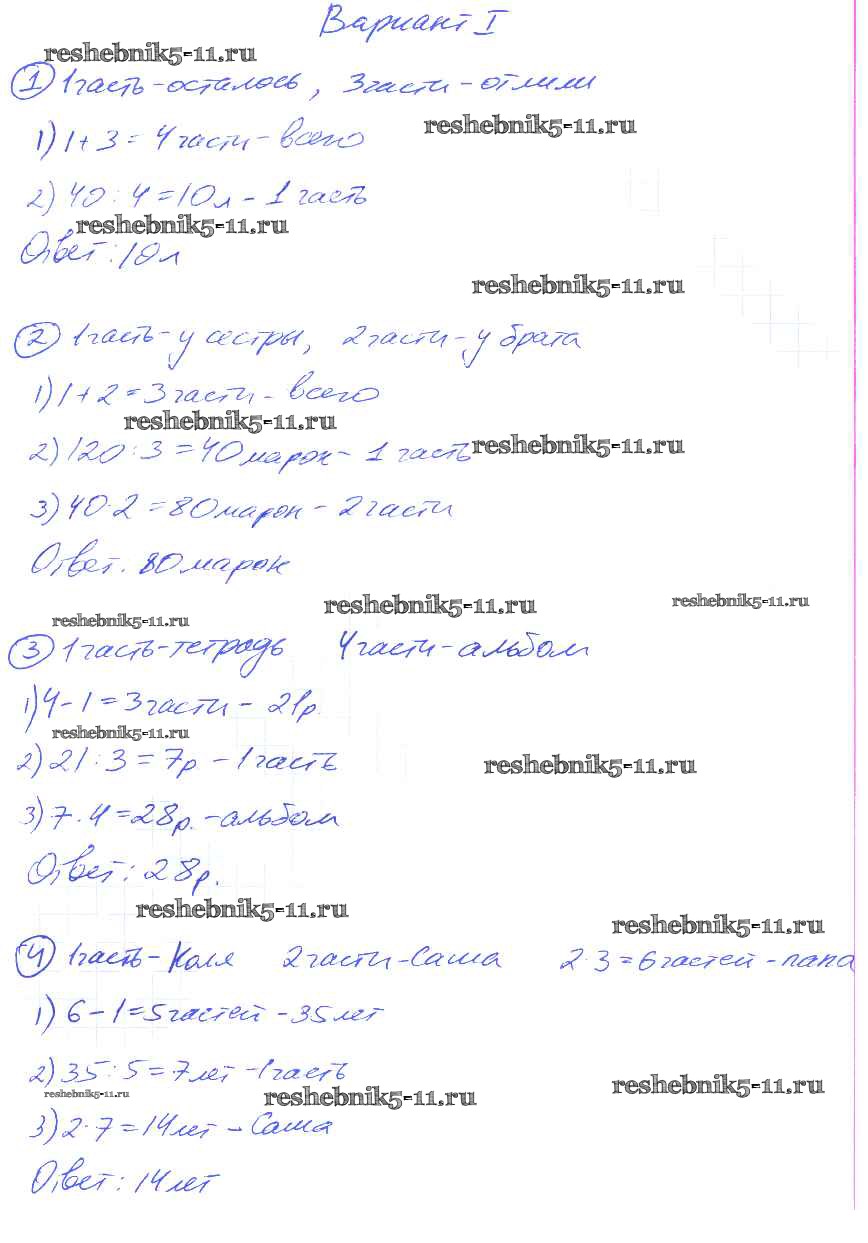 Вариант I
reshebnik5-11.ru
① 1часть-осталось, 3части-отлили
reshebnik5-11.ru
1) 1+3=4части-всего
2) 40:4=10л-1часть
reshebnik5-11.ru
Ответ: 10л
reshebnik5-11.ru
② 1часть-у сестры, 2части-у брата
1) 1+2=3части-всего
reshebnik5-11.ru
2) 120:3=40марок-1часть
reshebnik5-11.ru
3) 40·2=80марок-2части
Ответ. 80марок
reshebnik5-11.ru
reshebnik5-11.ru
reshebnik5-11.ru
③ 1часть-тетрадь 4части-альбом
1) 4-1=3части-21р.
reshebnik5-11.ru
2) 21:3=7р-1часть
reshebnik5-11.ru
3) 7·4=28р.-альбом
Ответ: 28р.
reshebnik5-11.ru
reshebnik5-11.ru
④ 1часть-Коля 2части-Саша 2·3=6частей-папа
1) 6-1=5частей-35лет
2) 35:5=7лет-1часть
reshebnik5-11.ru
reshebnik5-11.ru
reshebnik5-11.ru
3) 2·7=14лет-Саша
Ответ: 14лет